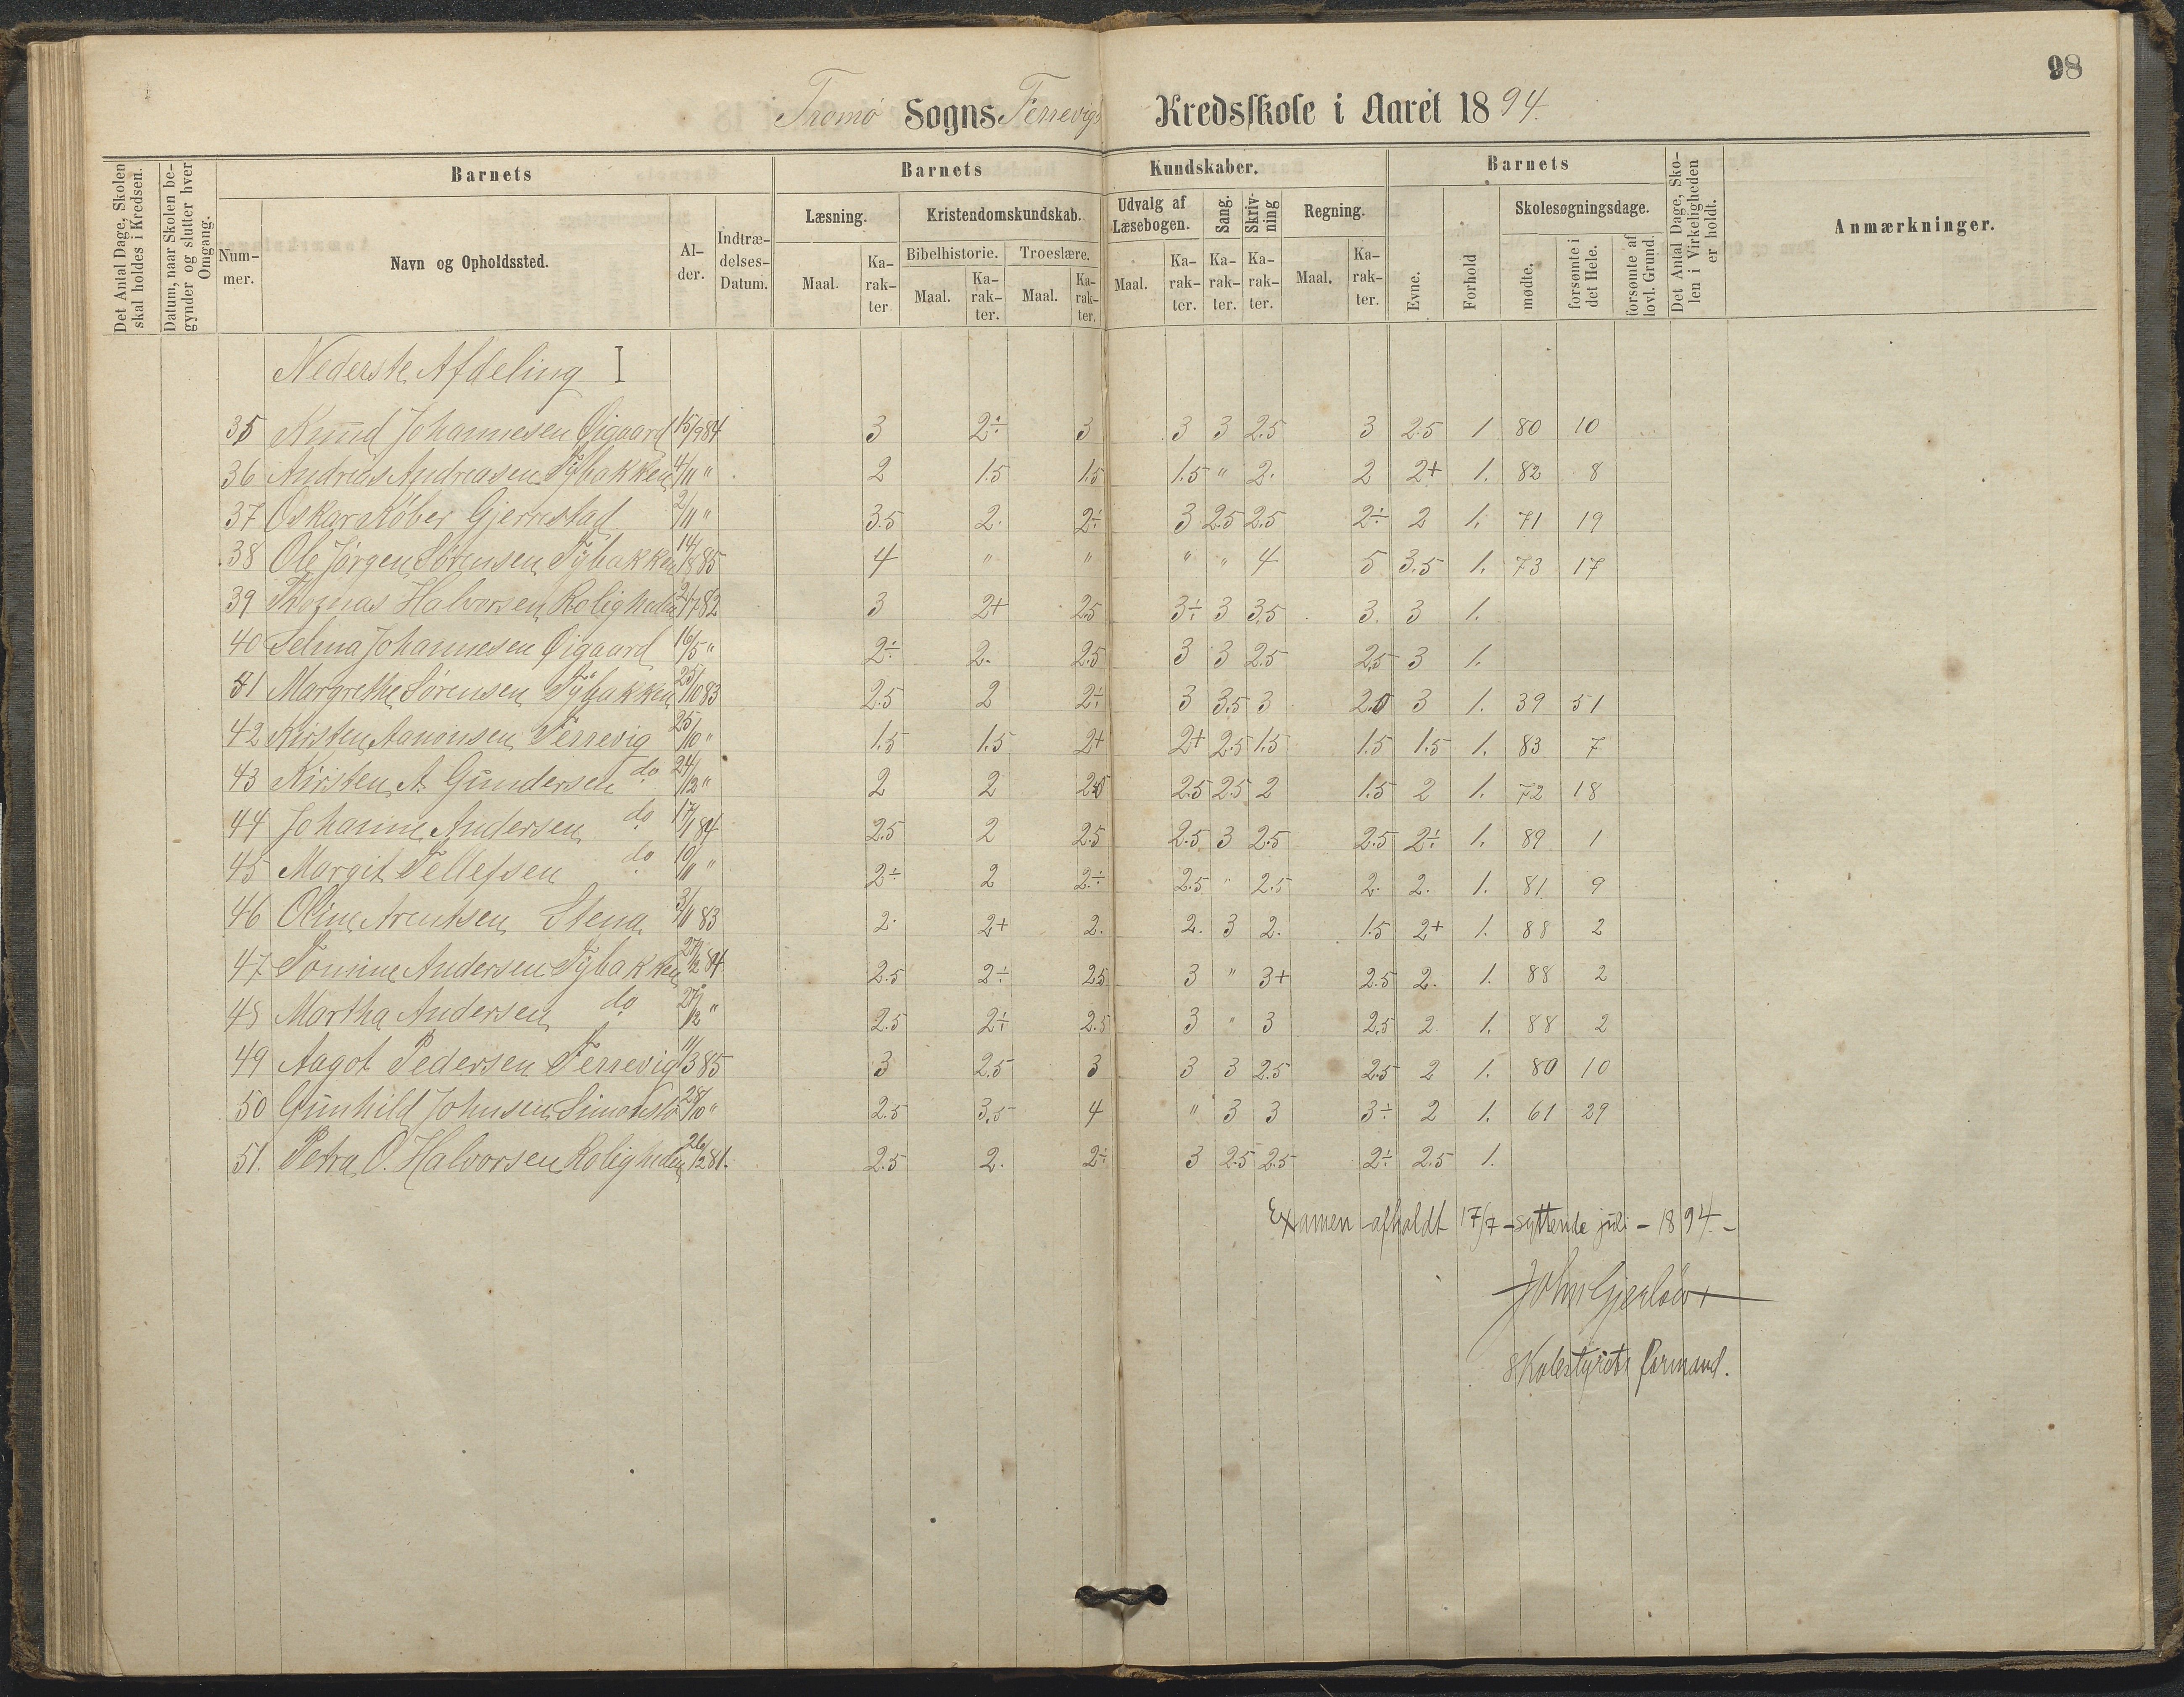 98
Tromø Sogns Ferrevigs Kredsskole i Aaret 1894.
Det Antal Dage, Skolen skal holdes i Kredsen.
Datum, naar Skolen begynder og slutter hver Omgang.
Barnets
Num-mer.
Navn og Opholdssted.
Al-der.
Indtræ-delses-Datum.
Barnets Kundskaber.
Læsning.
Maal.
Ka-rak-ter
Kristendomskundskab.
Bibelhistorie.
Maal.
Ka-rak-ter.
Troeslære.
Maal.
Ka-rak-ter.
Udvalg af Læsebogen.
Maal.
Ka-rak-ter.
Sang.
Ka-rak-ter.
Skriv-ning
Ka-rak-ter.
Regning.
Maal.
Ka-rak-ter.
Barnets
Evne.
Forhold
Skolesøgningsdage.
mødte.
forsømte i det Hele.
forsømte af lovl. Grund.
Det Antal Dage, Sko-len i Virkeligheden er holdt.
Anmærkninger.
Nederste Afdeling I
35 Knud Johannesen Øigaard 15/9 84 3 2÷ 3 3 3 2.5 3 2.5 1 80 10
36 Andreas Andreasen Tybakken 4/11 " 2 1.5 1.5 1.5 " 2. 2 2+ 1. 82 8
37 Oskar Køber Gjerrestad 2/11 " 3.5 2. 2÷ 3 2.5 2.5 2÷ 2 1. 71 19
38 Ole Jørgen Sørensen Tybakken 14/8 85 4 " " " " 4 5 3.5 1. 73 17
39 Thomas Halvorsen Roligheden 2/7 82 3 2+ 2.5 3÷ 3 3.5 3. 3 1.
40 Selma Johannesen Øigaard 16/5 " 2÷ 2. 2.5 3 3 2.5 2.5 3 1.
41 Margrethe Sørensen Tybakken 25/10 83 2.5 2 2÷ 3 3.5 3 2.5 3 1. 39 51
42 Kirsten Aanonsen Ferrevig 25/10 " 1.5 1.5 2+ 2+ 2.5 1.5 1.5 1.5 1. 83 7
43 Kirsten A. Gundersen do 24/12 " 2 2 2.5 2.5 2.5 2 1.5 2 1. 72 18
44 Johanne Andersen do 17/1 84 2.5 2 2.5 2.5 3 2.5 2.5 2÷ 1. 89 1
45 Margit Tellefsen do 10/11 " 2÷ 2 2÷ 2.5 " 2.5 2. 2. 1. 81 9
46 Oline Arentsen Stena 3/11 83 2. 2+ 2. 2. 3 2. 1.5 2+ 1. 88 2
47 Tomine Andersen Tybakken 27/12 84 2.5 2÷ 2.5 3 " 3+ 2.5 2. 1. 88 2
48 Martha Andersen do 27/12 " 2.5 2÷ 2.5 3 " 3 2.5 2 1. 88 2
49 Aagot Pedersen Ferrevig 11/3 85 3 2.5 3 3 3 2.5 2.5 2 1. 80 10
50 Gunhild Johnsen Simonstø 28/10 " 2.5 3.5 4 " 3 3 3÷ 2 1. 61 29
51. Petra O. Halvorsen Roligheden 26/12 81. 2.5 2. 2÷ 3 2.5 2.5 2÷ 2.5 1.
Examen afholdt 17/7 - syttende juli - 1894. -
John Gjerløw
Skolestyrets formand.